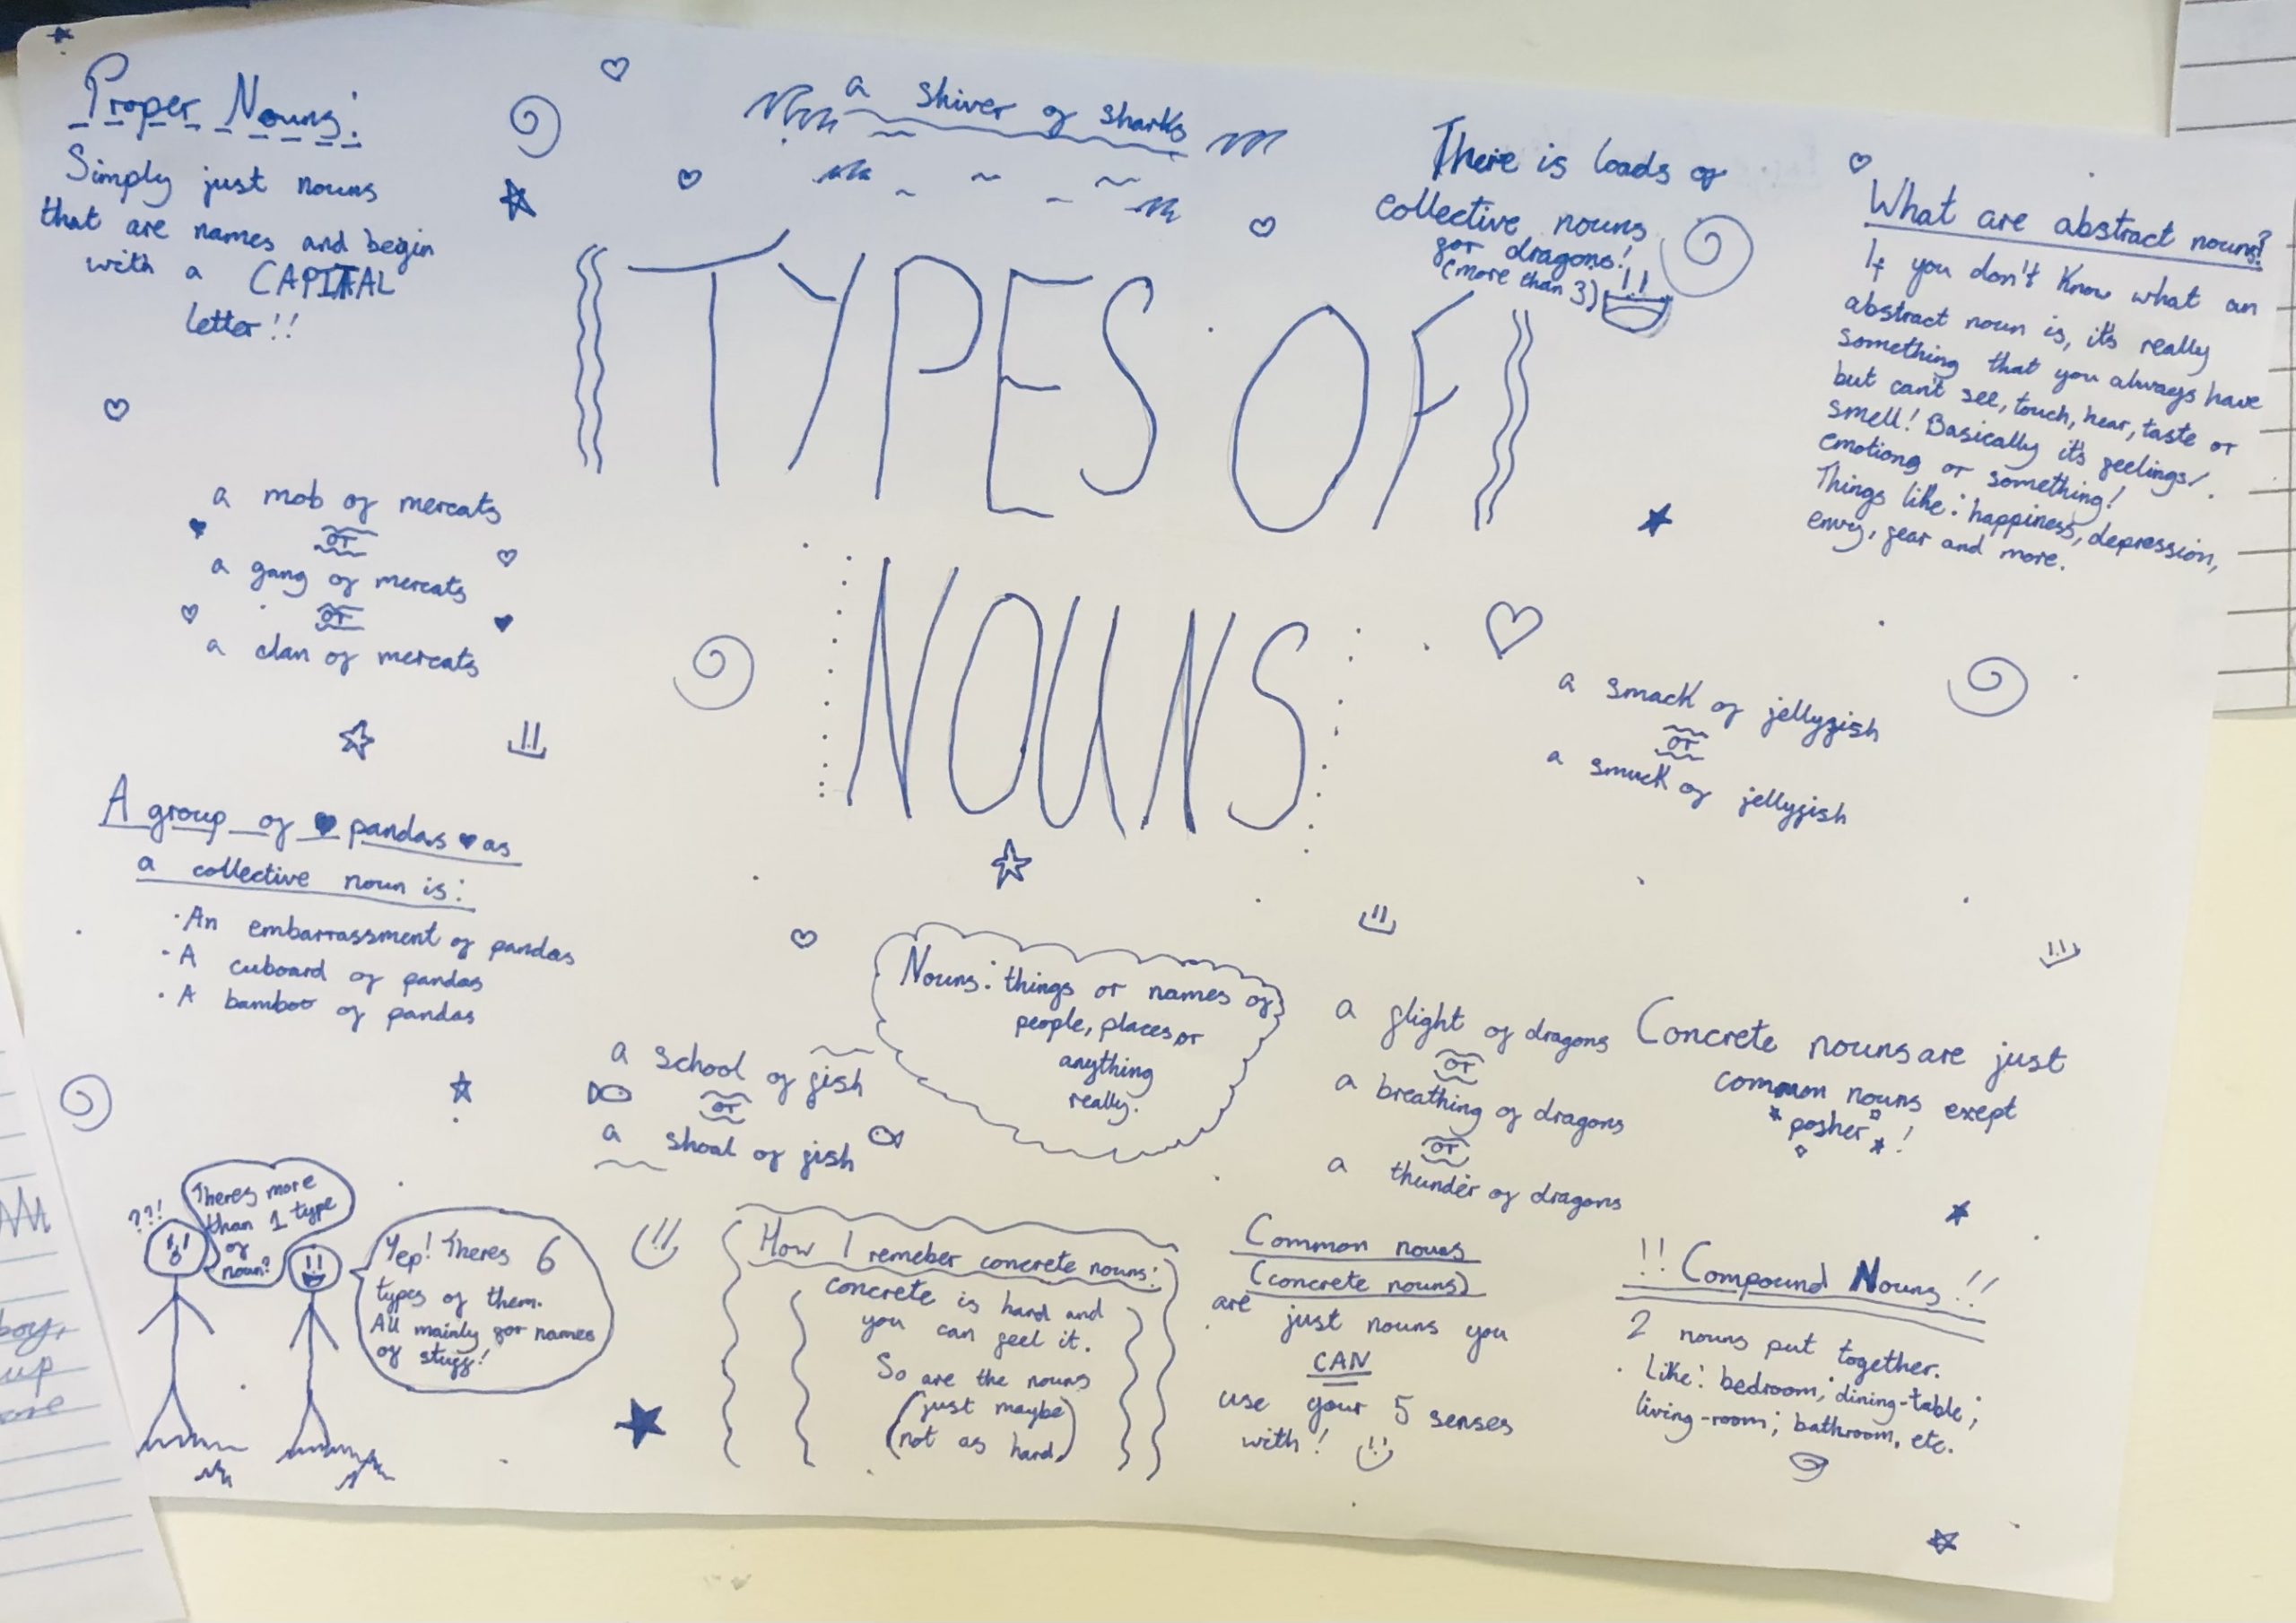 Proper Nouns:
Simply just nouns
that are names and begin
with a CAPITAL
letter!!
a shiver of sharks
There is loads of
collective nouns
for dragons!
(more than 3)
What are abstract nouns?
If you don't know what an
abstract noun is, it's really
something that you always have
but can't see, touch, hear, taste or
smell! Basically it's feelings/
emotions or something!
Things like: happiness, depression,
envy, fear and more.
TYPES OF
NOUNS
a mob of mercats
or
a gang of mercats
or
a clan of mercats
a smack of jellyfish
or
a smuck of jellyfish
A group of pandas as
a collective noun is:
· An embarrassment of pandas
· A cuboard of pandas
· A bamboo of pandas
Nouns: things or names of
people, places or
anything
really.
a school of fish
or
a shoal of fish
a flight of dragons
or
a breathing of dragons
or
a thunder of dragons
Concrete nouns are just
common nouns exept
posher !
??!
Theres more
than 1 type
of
noun?
Yep! Theres 6
types of them.
All mainly for names
of stuff!
How I remeber concrete nouns:
concrete is hard and
you can feel it.
So are the nouns
(just maybe)
(not as hard)
Common nouns
(concrete nouns)
are just nouns you
CAN
use your 5 senses
with!
!! Compound Nouns !!
2 nouns put together.
· Like: bedroom; dining-table;
living-room; bathroom, etc.
boy,
up